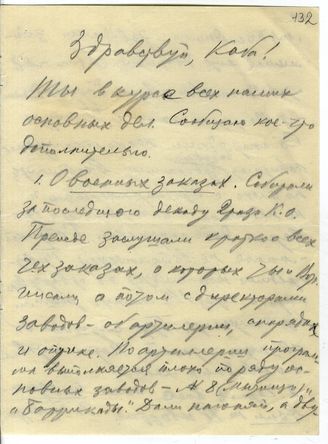 132
Здравствуй, Коба!
Ты в курсе всех наших
основных дел. Сообщаю кое-что
дополнительно.
1. О военных заказах. Собирали
за последнюю декаду 2 раза К.О.
Прежде заслушали кратко о всех
тех заказах, о которых ты и
писали, а потом с директорами
заводов – об артиллерии, снарядах
и оптике. По артиллерии програм-
ма выполняется плохо по ряду ос-
новных заводов – № 8 (Мытищи)
и "Баррикады". Дали нагоняй, а дву